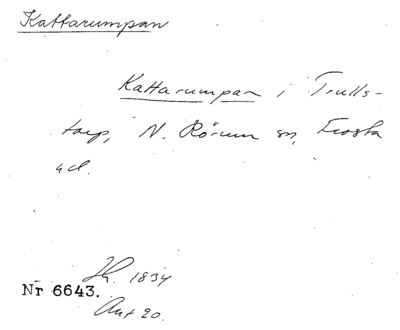 Kattarumpan
Kattarumpan i Trulls-
torp, N. Rörum sn, Frosta
hd.
1834
Nr 6643.
Akt 20.